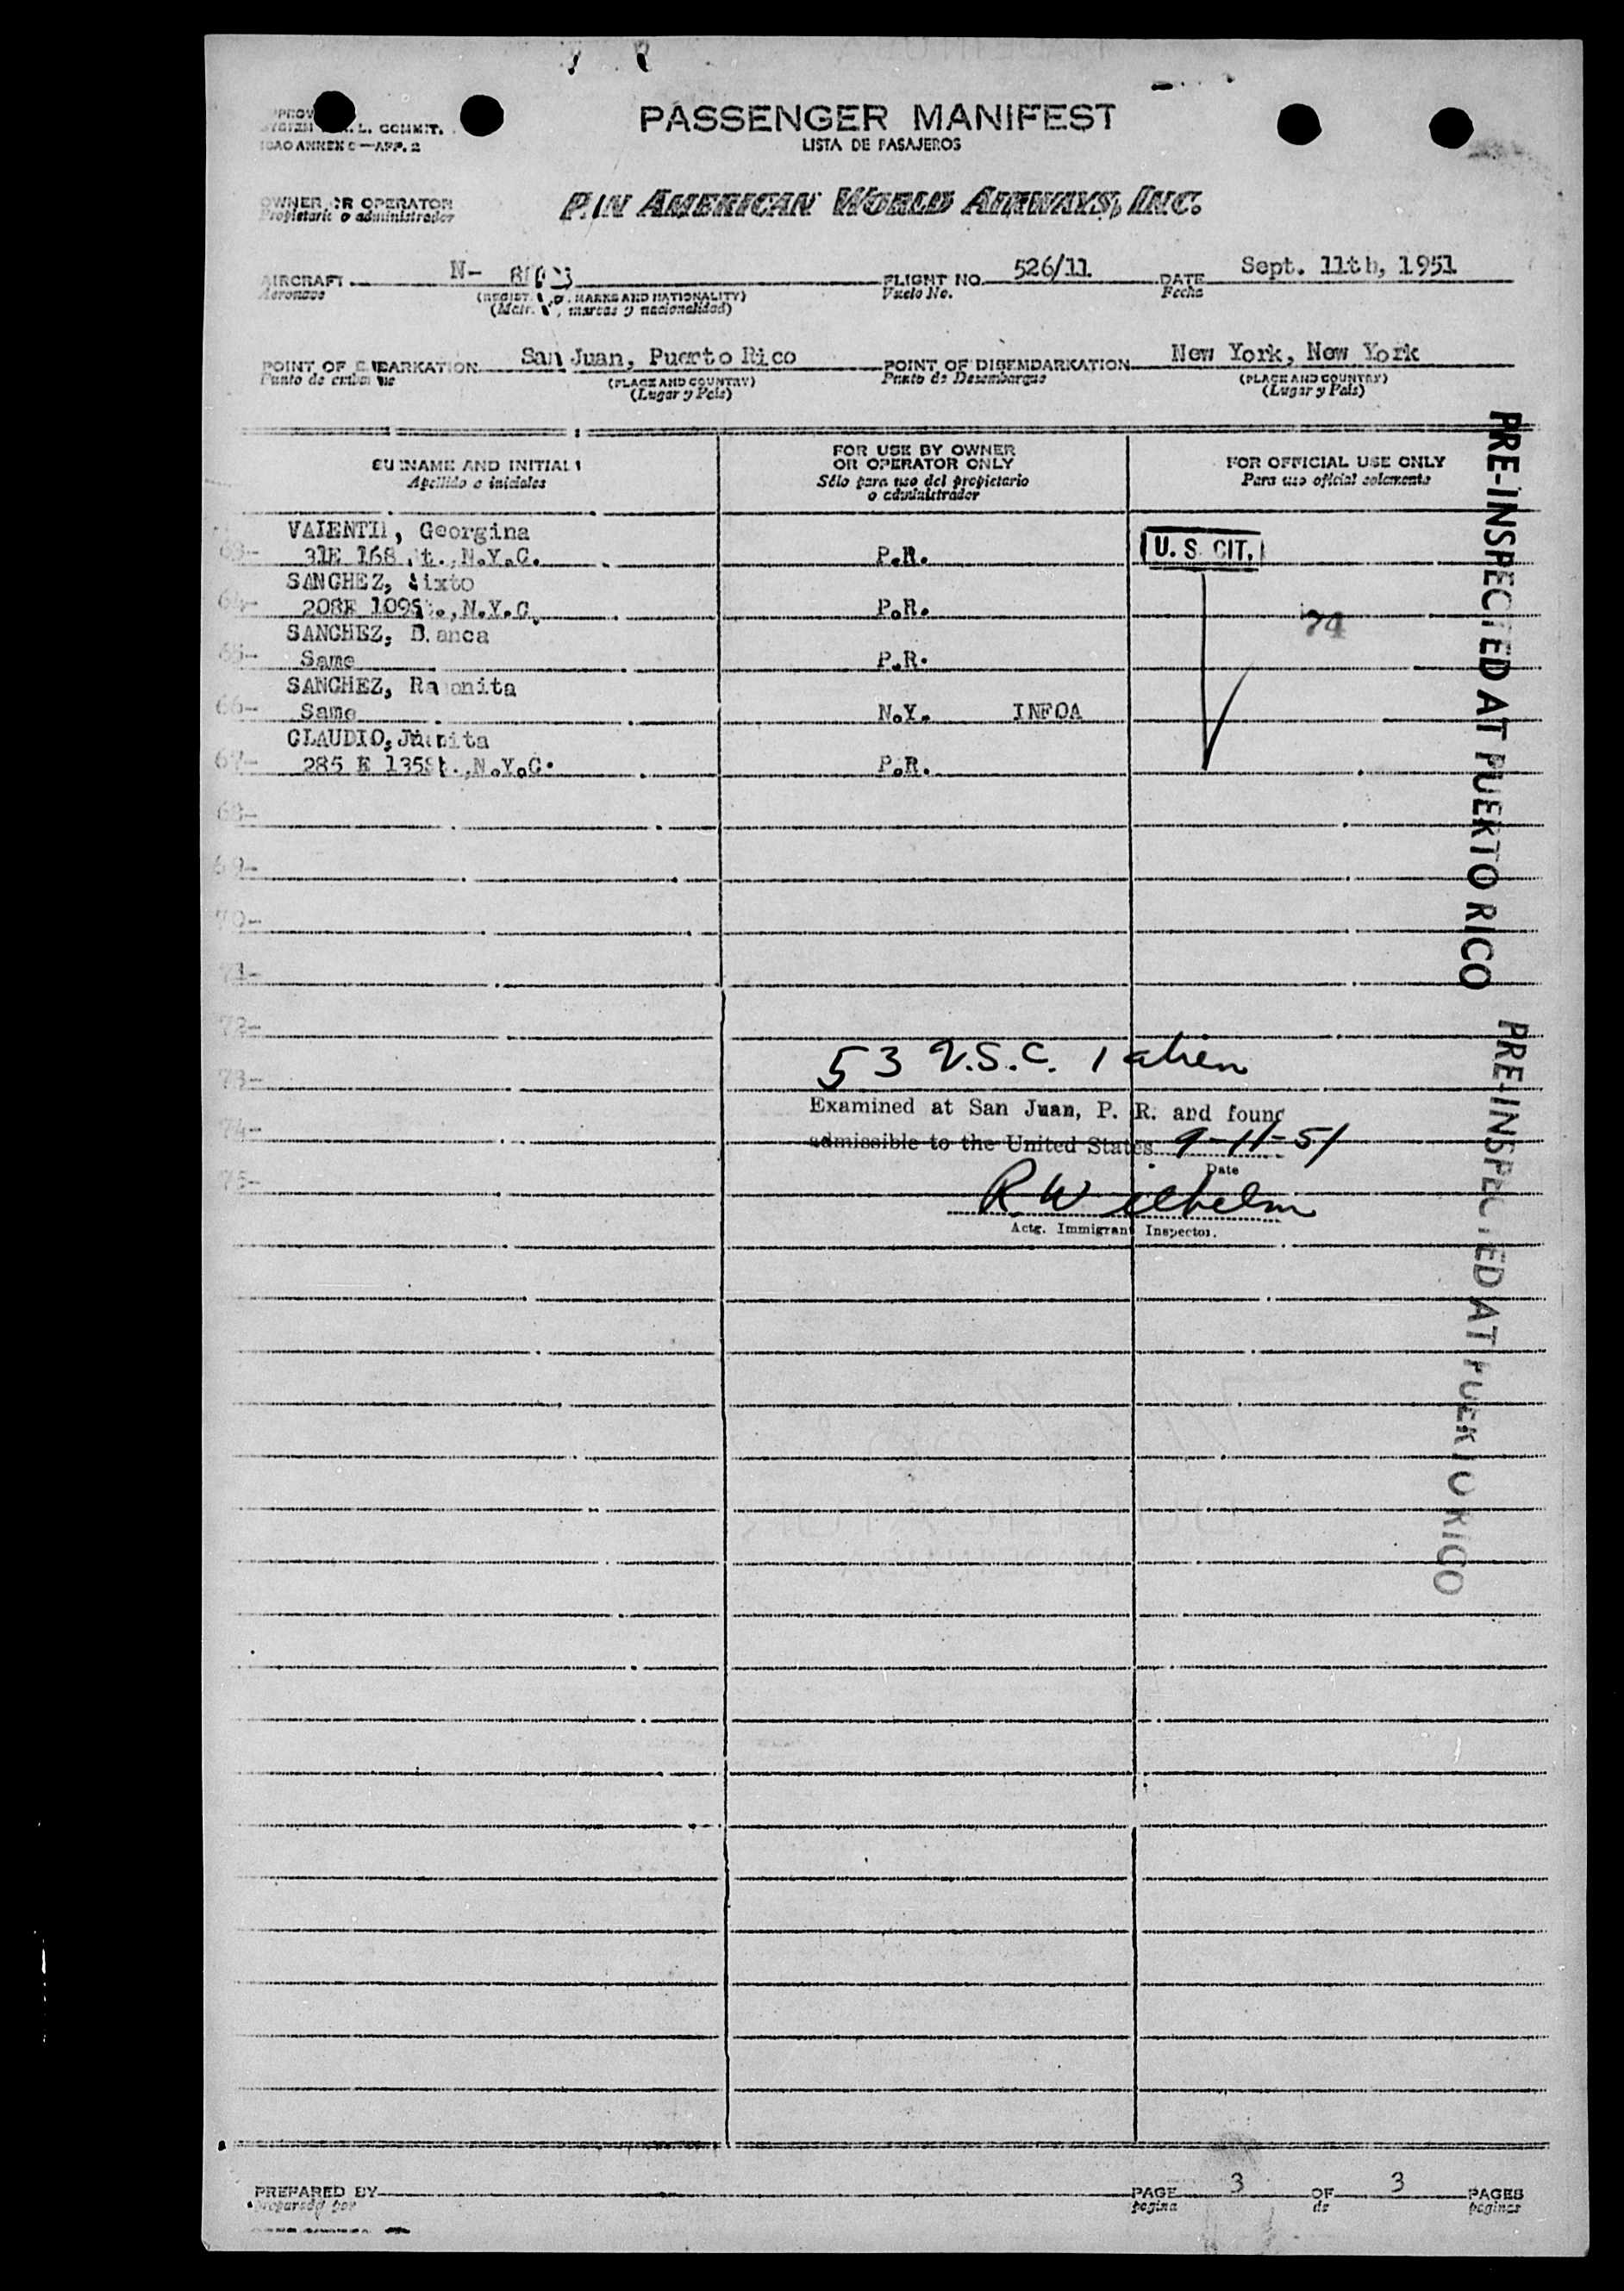 PASSENGER MANIFEST
LISTA DE PASAJEROS
L. COMMIT.
ICAO ANNEX 9—APP. 2
OWNER OR OPERATOR
Propietario o administrador
PAN AMERICAN WORLD AIRWAYS, INC.
AIRCRAFT N-
Aeronave
(REGIST. MARKS AND NATIONALITY)
(Matr. marcas y nacionalidad)
FLIGHT NO. 526/11
Vuelo No.
DATE Sept. 11th, 1951
Fecha
POINT OF EMBARKATION San Juan, Puerto Rico
Punto de embarque
(PLACE AND COUNTRY)
(Lugar y País)
POINT OF DISEMBARKATION New York, New York
Punto de Desembarque
(PLACE AND COUNTRY)
(Lugar y País)
SURNAME AND INITIALS
Apellido e iniciales
FOR USE BY OWNER
OR OPERATOR ONLY
Sólo para uso del propietario
o administrador
FOR OFFICIAL USE ONLY
Para uso oficial solamente
VALENTIN, Georgina
63- 31E 168 St., N.Y.C. P.R. U. S. CIT.
SANCHEZ, Sixto
64- 208E 109St., N.Y.C. P.R. 74
SANCHEZ, Blanca
65- Same P.R.
SANCHEZ, Ramonita
66- Same N.Y. INFOA
CLAUDIO, Juanita
67- 285 E 135St., N.Y.C. P.R.
68-
69-
70-
71-
72-
53 U.S.C. 1 alien
73-
Examined at San Juan, P. R. and found
74-
admissible to the United States 9-11-51
Date
75-
R. Wilhelm
Actg. Immigrant Inspector.
PRE-INSPECTED AT PUERTO RICO
PRE-INSPECTED AT PUERTO RICO
PREPARED BY
preparado por
PAGE 3 OF 3 PAGES
pagina de paginas